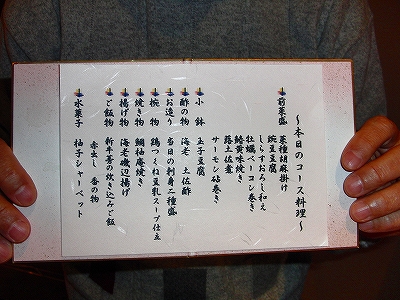 ～本日のコース料理～
前菜盛 菜種胡麻掛け
豌豆豆腐
しらすおろし和え
牡蠣ベーコン巻き
鰆黄味焼き
蕗土佐煮
サーモン砧巻き
小鉢 玉子豆腐
酢の物 海老 土佐酢
お造り 当日の刺身二種盛
椀物 鶏つくね豆乳スープ仕立
焼き物 鯛柚庵焼き
揚げ物 海老磯辺揚げ
ご飯物 新牛蒡の炊き込みご飯
赤出し 香の物
水菓子 柚子シャーベット